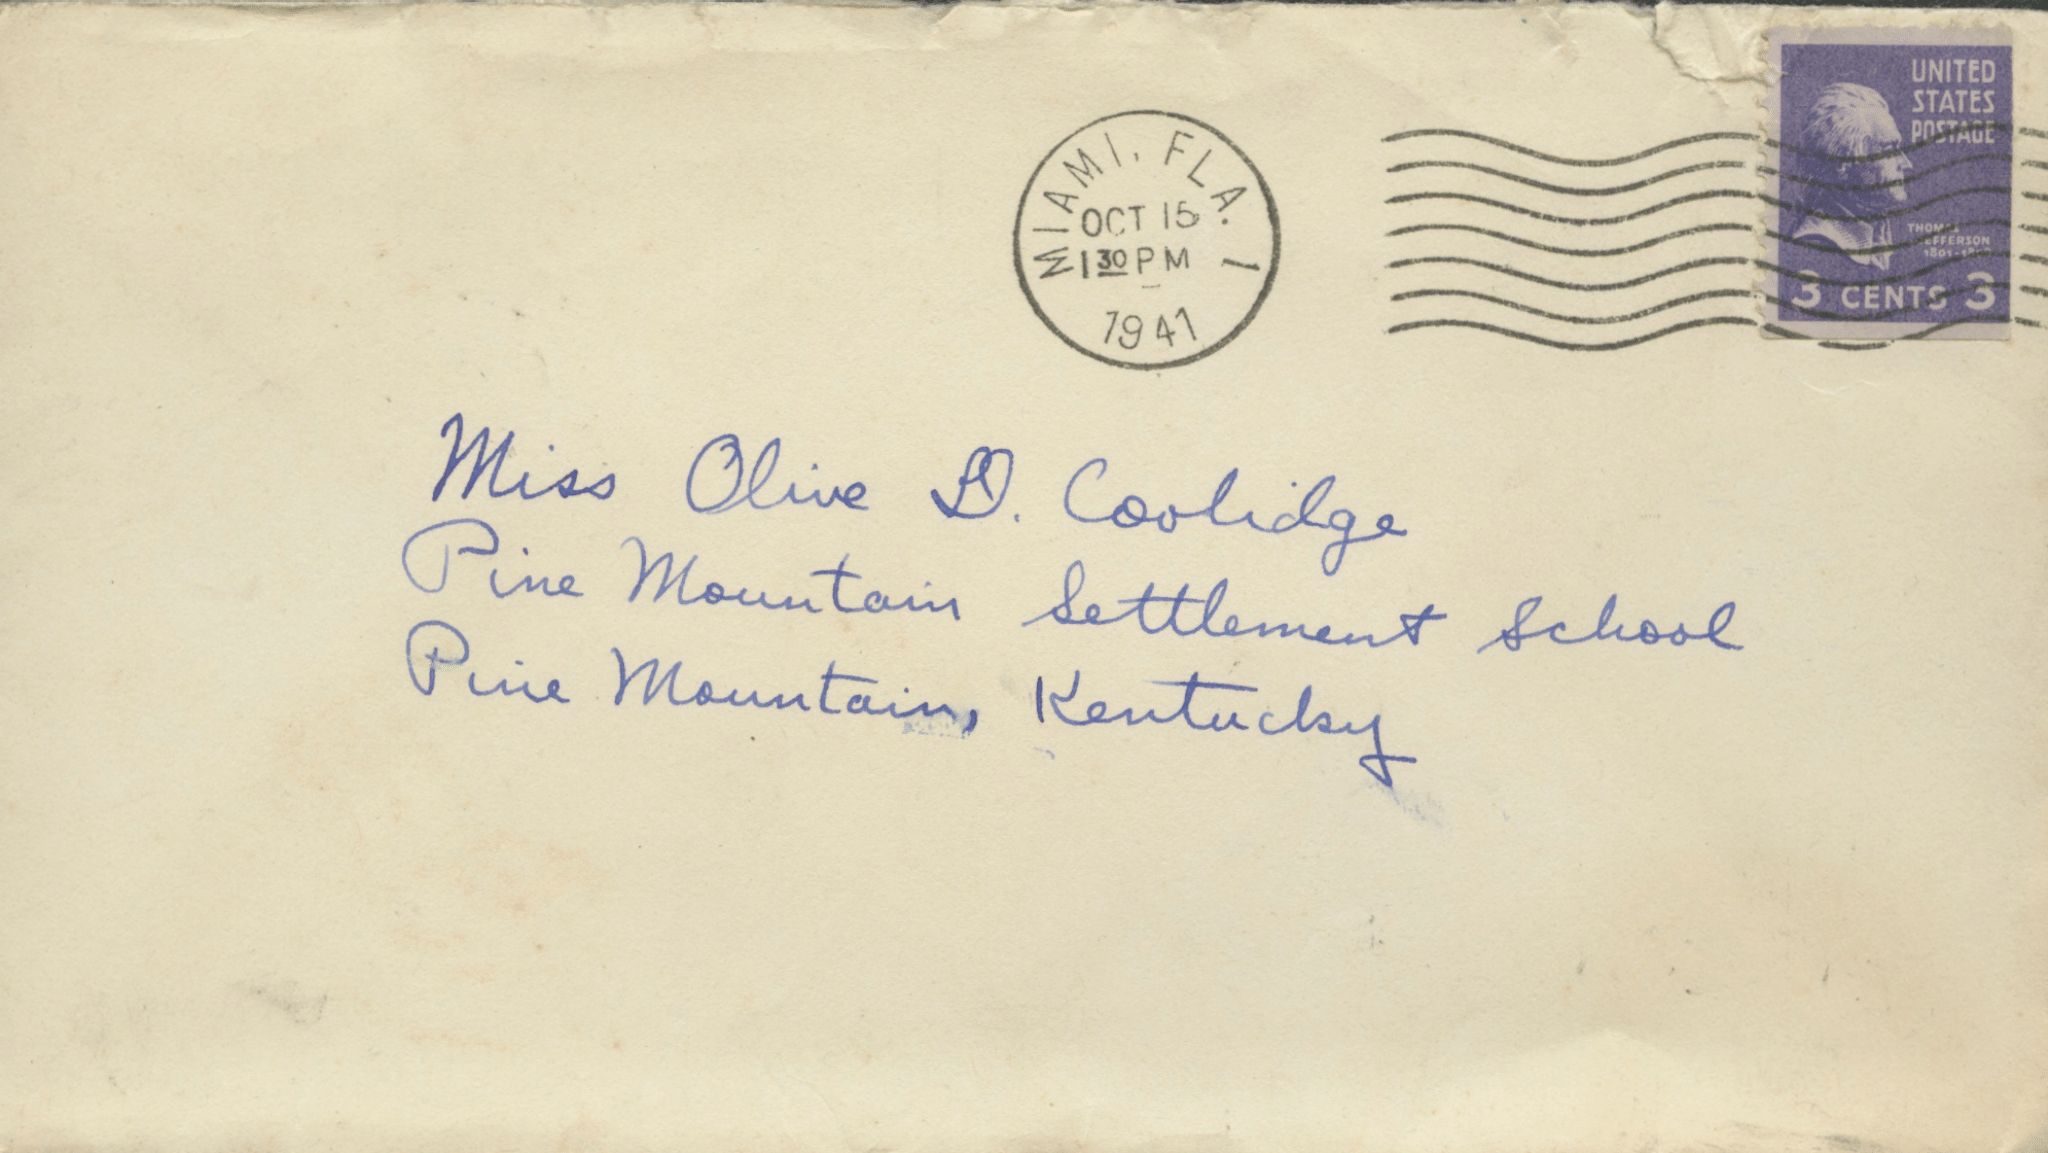 UNITED
STATES
POSTAGE
THOMAS
JEFFERSON
3 CENTS 3
MIAMI, FLA. 1
OCT 15
1 30 PM
1941
Miss Olive D. Coolidge
Pine Mountain Settlement School
Pine Mountain, Kentucky